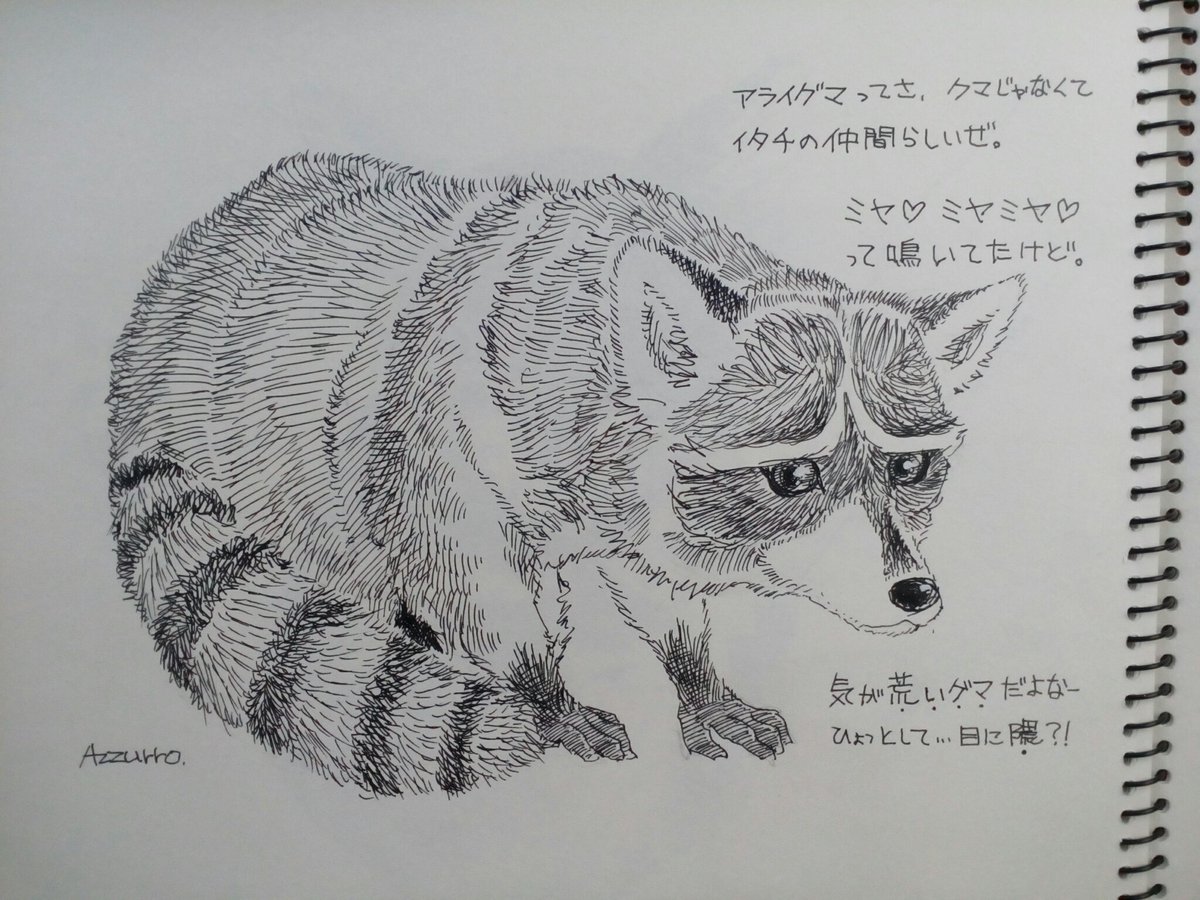 アライグマってさ、クマじゃなくて
イタチの仲間らしいぜ。
ミヤ♡ミヤミヤ♡
って鳴いてたけど。
気が荒いグマだよなー
ひょっとして…目に隈?!
Azzurro.